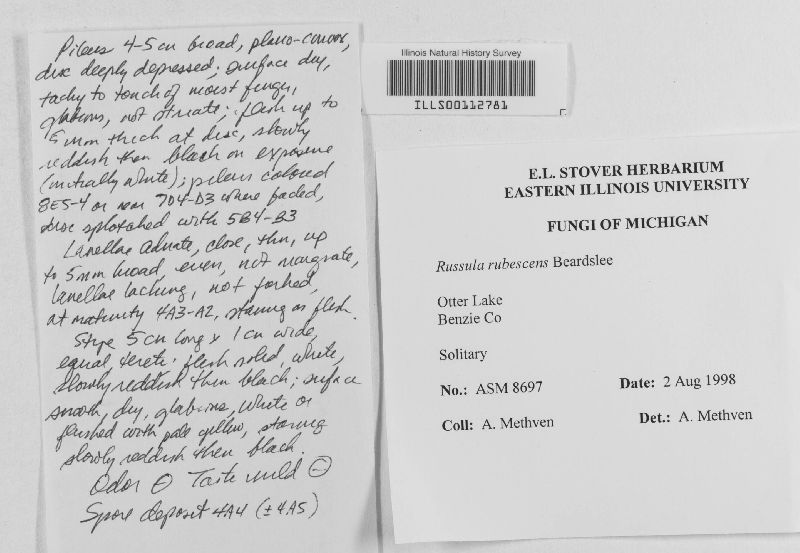 Pileus 4-5 cm broad, plano-convex,
disc deeply depressed; surface dry,
tacky to touch of moist fungi,
glabrous, not striate; flesh up to
5 mm thick at disc, slowly
reddish then black on exposure
(initially white); pileus colored
8E5-4 or near 7D4-D3 where faded,
disc splotched with 5B4-B3
Lamellae adnate, close, thin, up
to 5mm broad, even, not marginate,
lamellae lacking, not forked,
at maturity 4A3-A2, staining as flesh.
Stipe 5 cm long x 1 cm wide,
equal, terete; flesh solid, white,
slowly reddish then black; surface
smooth, dry, glabrous, white or
flushed with pale yellow, staining
slowly reddish then black.
Odor ⊖ Taste mild ⊖
Spore deposit 4A4 (±4A5)
Illinois Natural History Survey
ILLS00112781
E.L. STOVER HERBARIUM
EASTERN ILLINOIS UNIVERSITY
FUNGI OF MICHIGAN
Russula rubescens Beardslee
Otter Lake
Benzie Co
Solitary
No.: ASM 8697 Date: 2 Aug 1998
Coll: A. Methven Det.: A. Methven